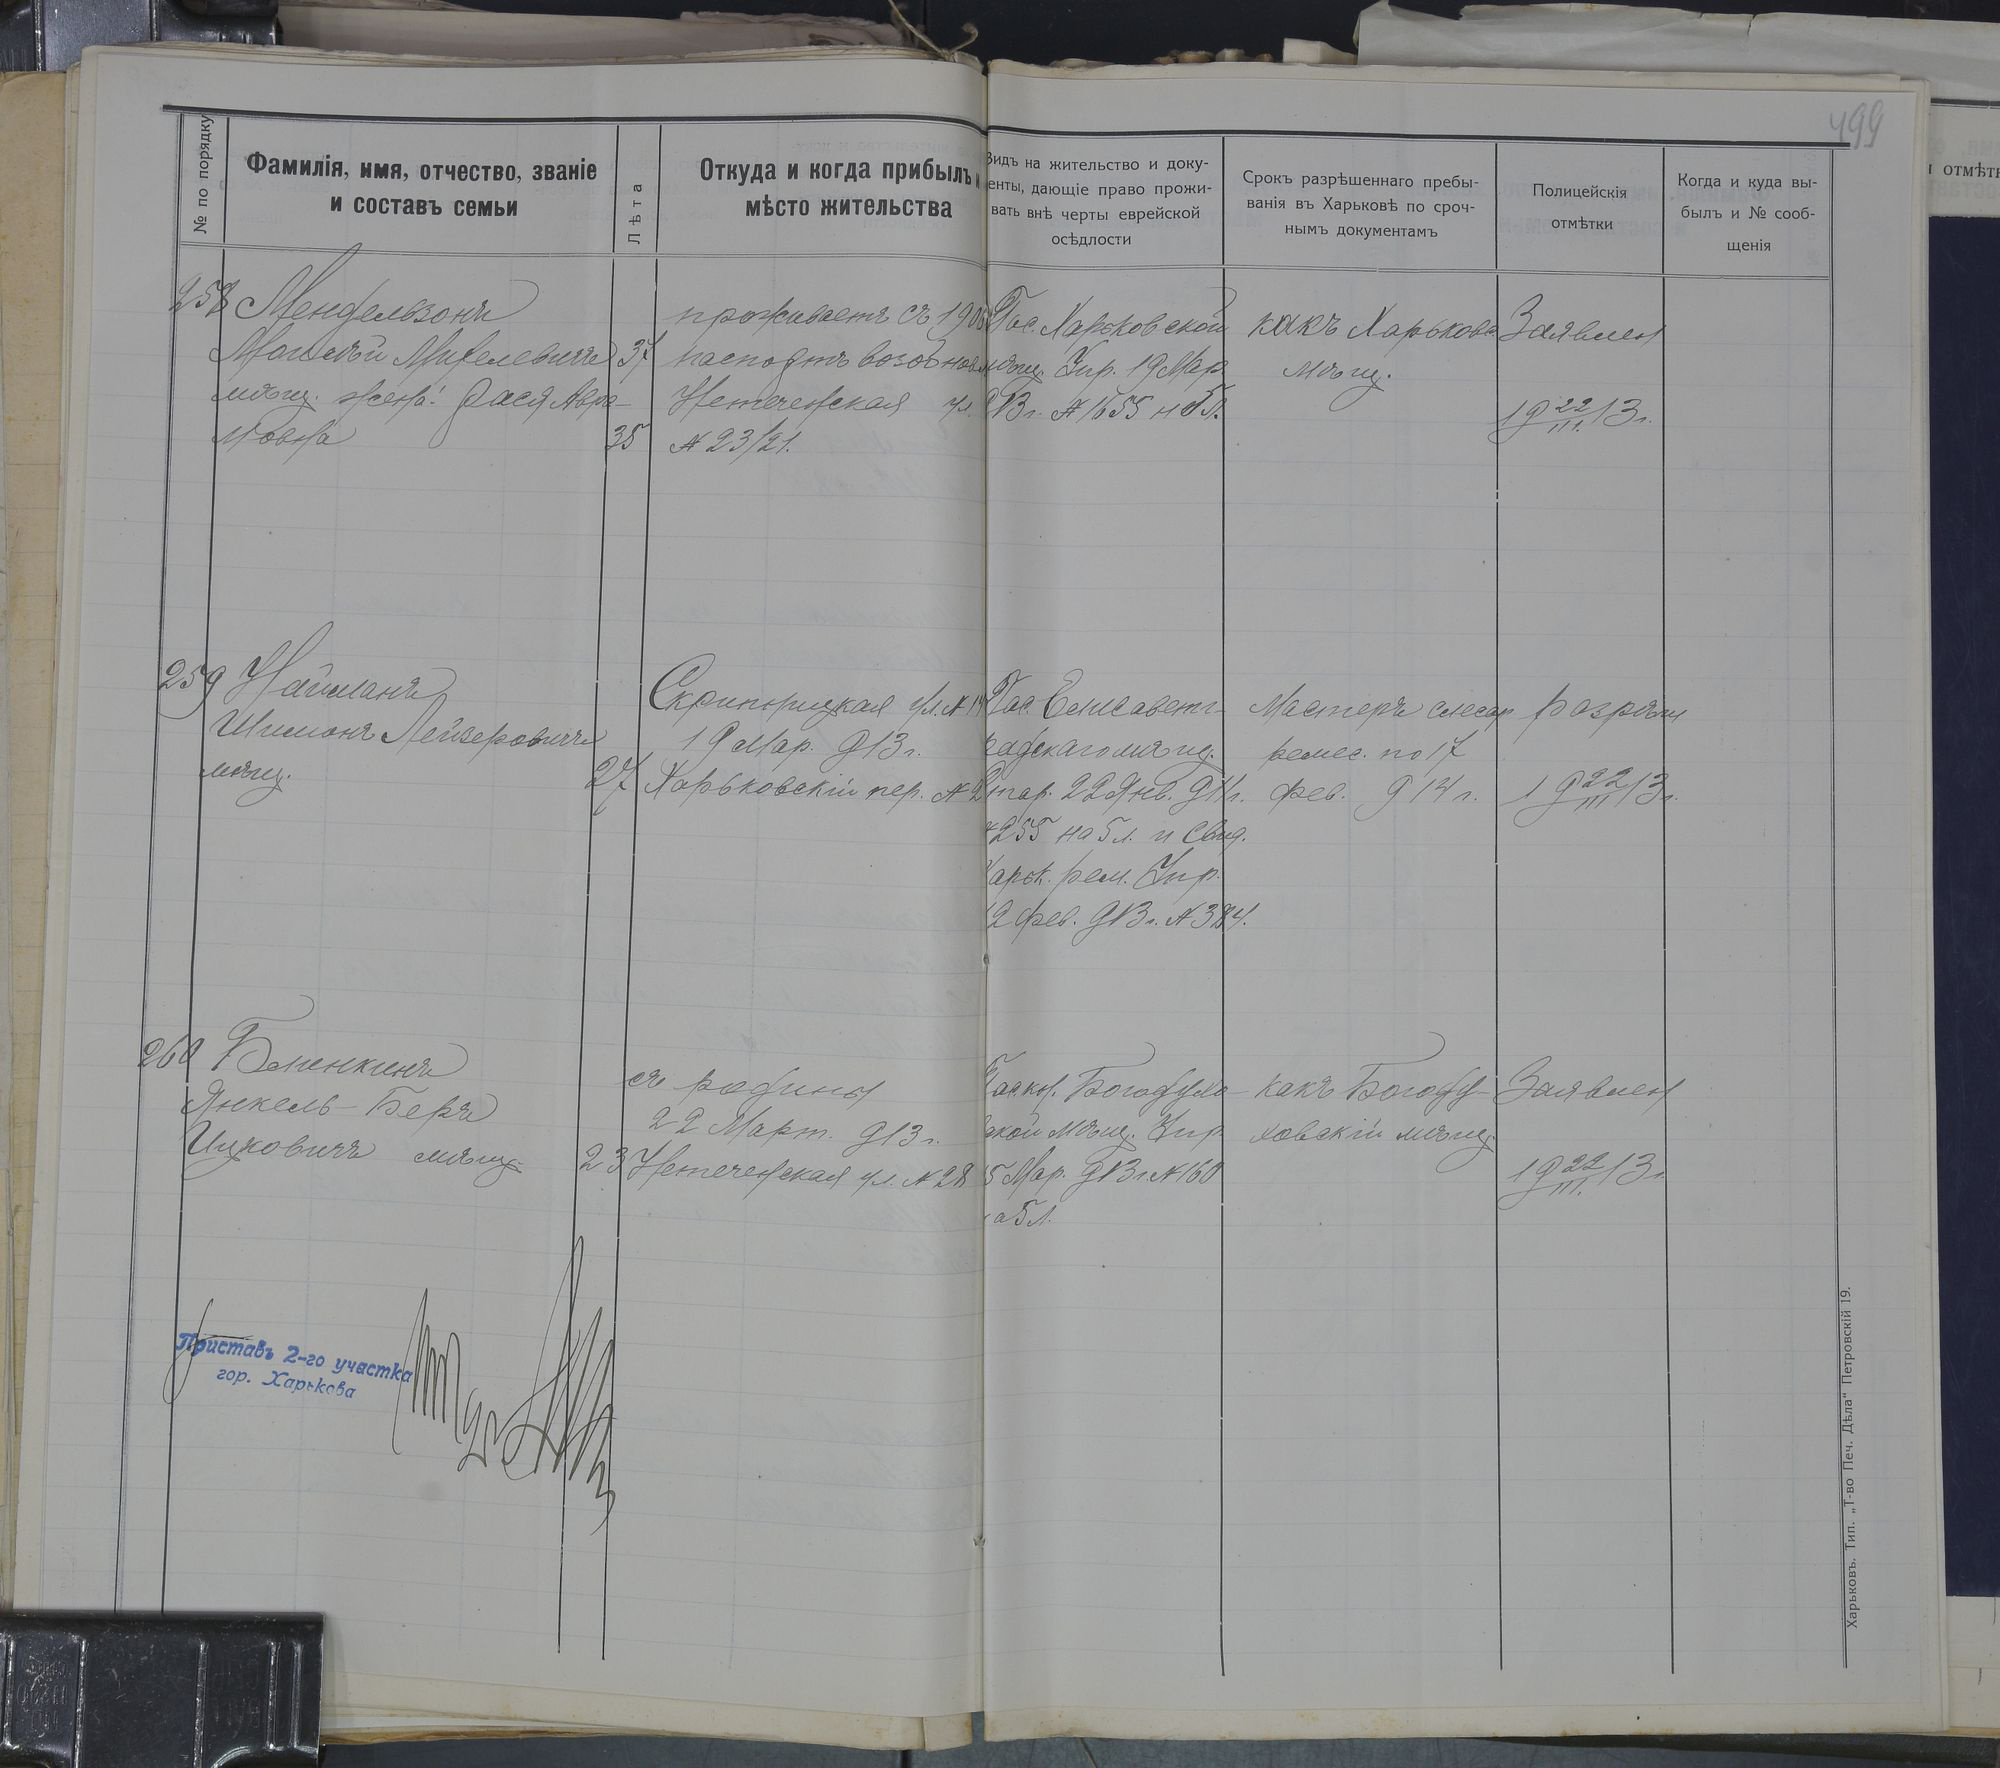 499
№ по порядку
Фамилія, имя, отчество, званіе
и составъ семьи
Лѣта
Откуда и когда прибылъ и
мѣсто жительства
Видъ на жительство и доку-
енты, дающіе право прожи-
вать внѣ черты еврейской
осѣдлости
Срокъ разрѣшеннаго пребы-
ванія въ Харьковѣ по сроч-
нымъ документамъ
Полицейскія
отмѣтки
Когда и куда вы-
былъ и № сооб-
щенія
отмѣт
258 Мендельзонъ
Мошкъ 37
мѣщ. жена: Авра-
мовна 35
проживаетъ съ 190
паспортъ возобнов
Нетеченская ул.
№ 23/21.
Пас. Харьковской
мѣщ. Упр. 19 Мар.
913г. № 1655 н 5л.
какъ Харьковс
мѣщ.
Заявлен
19 22/III 13г.
259 Найманъ
Шимонъ Лейзеровичъ
мѣщ. 27
ул. № 14
19 Мар. 913г.
Харьковскій пер. № 2
Пас. Елисавет-
радскаго мѣщ.
стар. 22 Янв. 911г.
255 на 5л. и Свид.
Харьк. рем. Упр.
12 фев. 913г. № 384.
Мастеръ слесар
ремес. по 17
фев. 914г.
разрѣш
19 22/III 13г.
260 Блинкинъ
Янкель-Беръ
Ицковичъ мѣщ. 23
съ родины
22 Март. 913г.
Нетеченская ул. № 28
Паскн. Богодухо-
вской мѣщ. Упр
5 Мар. 913г. № 160
на 5л.
какъ Богоду-
ховскій мѣщ.
Заявлен
19 22/III 13г.
Приставъ 2-го участка
гор. Харькова
Харьковъ. Тип. „Т-во Печ. Дѣла“ Петровскій 19.